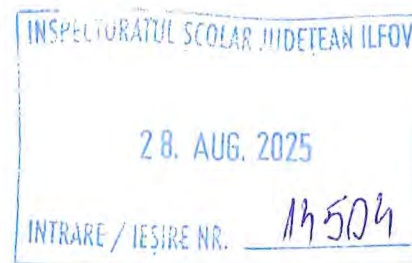 INSPECTORATUL ȘCOLAR JUDEȚEAN ILFOV
28. AUG. 2025
INTRARE / IEȘIRE NR. 14504